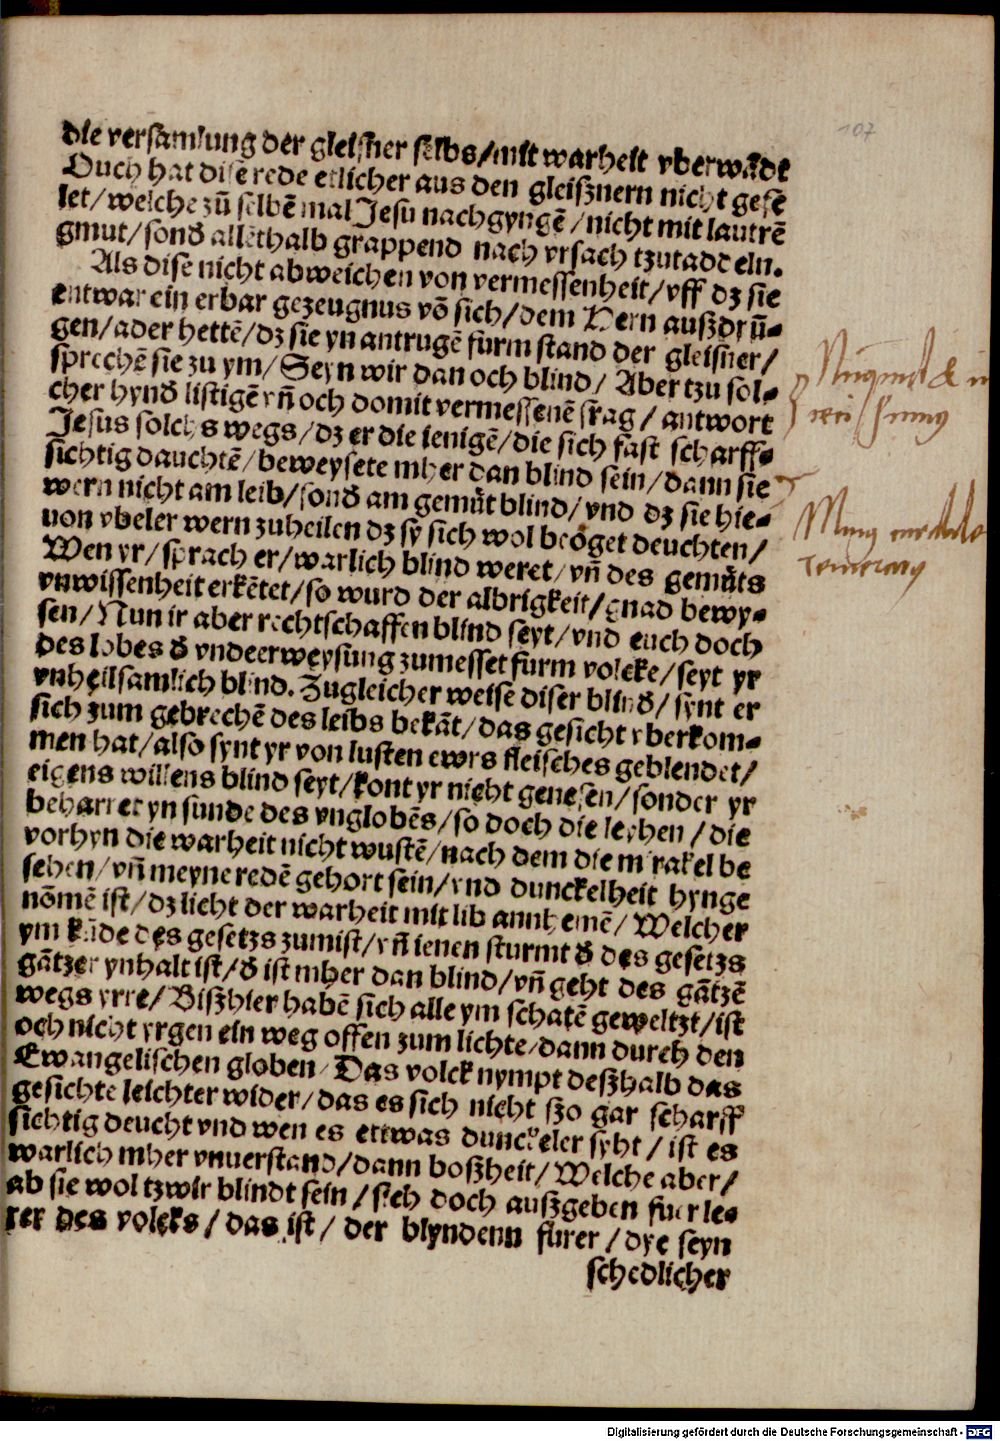 107
die versamlung der gleisner selbs/mit warheit vberwādt
Ouch hat dise rede etlicher aus den gleißnern nicht gefē
let/welche zū selbē mal Jesu nachgyngē/nicht mit lautrē
gmut/sonď allēthalb grappend nach vrsach tzutaddeln.
Als dise nicht abweichen von vermessenheit/vff dz sie
entwar ein erbar gezeugnus vō sich/dem Hern außdrū-
gen/ader hettē/dz sie yn antrugē furm stand der gleisner/
sprechē sie zu ym/Seyn wir dan och blind/Aber tzu sol-
cher hynď listigē vñ och domit vermessenē frag/antwort
Jesus solchs wegs/dz er die ienigē/die sich fast scharff-
sichtig dauchtē/beweysete mher dan blind sein/dann sie
wern nicht am leib/sonď am gemüt blind/vnd dz sie hie-
uon vbeler wern zuheilen dz sy sich wol beöget deuchten/
Wen yr/sprach er/warlich blind weret/vñ des gemüts
vnwissenheit erkētet/so wurd der albrigkeit/gnad bewy-
sen/Nun ir aber rechtschaffen blind seyt/vnd euch doch
des lobes ď vndeerweysung zumesset furm volcke/seyt yr
vnheilsamlich blind. Zugleicher weise diser blinď/synt er
sich zum gebrechē des leibs bekāt/das gesicht vberkom-
men hat/also synt yr von lusten ewrs fleisches geblendet/
eigens willens blind seyt/kont yr nicht genesen/sonder yr
beharret yn sunde des vnglobēs/so doch die leyhen/die
vorhyn die warheit nicht wustē/nach dem die mirakel be
sehen/vñ meyne redē gehort sein/vnd dunckelheit hynge
nōmē ist/dz licht der warheit mit lib annhemē/Welcher
ym kūde des gesetzs zumist/vñ ienen sturmt ď des gesetzs
gātzer ynhalt ist/ď ist mher dan blind/vñ geht des gātzē
wegs yrre/Bißhier habē sich alle ym schatē geweltzt/ist
och nicht yrgen ein weg offen zum lichte/dann durch den
Ewangelischen globen/Das volck nympt deßhalb das
gesichte leichter wider/das es sich nicht ßo gar scharff
sichtig deucht vnd wen es ettwas dunckeler syht/ist es
warlich mher vnuerstand/dann boßheit/Welche aber/
ab sie wol tzwir blindt sein/sich doch außgeben fuer le-
rer des volcks/das ist/der blyndenn furer/dye seyn
schedlicher
Digitalisierung gefördert durch die Deutsche Forschungsgemeinschaft - DFG